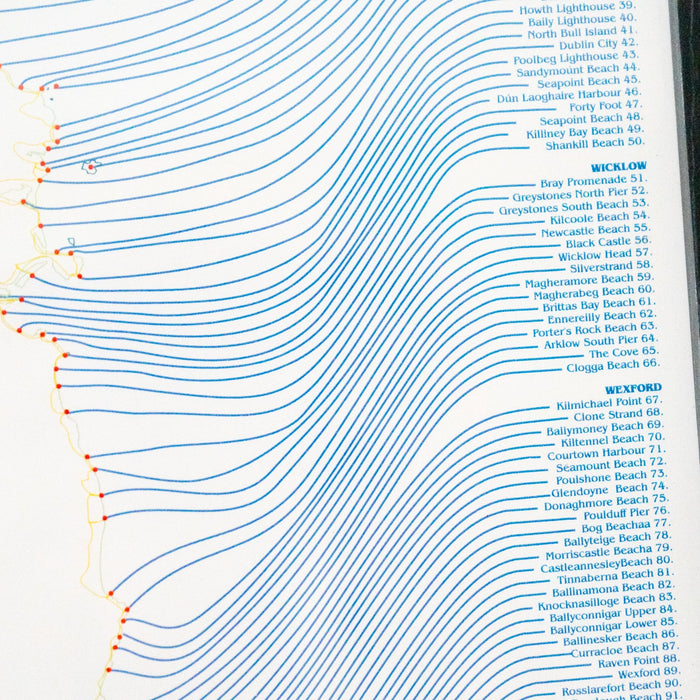 Howth Lighthouse 39.
Baily Lighthouse 40.
North Bull Island 41.
Dublin City 42.
Poolbeg Lighthouse 43.
Sandymount Beach 44.
Seapoint Beach 45.
Dún Laoghaire Harbour 46.
Forty Foot 47.
Seapoint Beach 48.
Killiney Bay Beach 49.
Shankill Beach 50.
WICKLOW
Bray Promenade 51.
Greystones North Pier 52.
Greystones South Beach 53.
Kilcoole Beach 54.
Newcastle Beach 55.
Black Castle 56.
Wicklow Head 57.
Silverstrand 58.
Magheramore Beach 59.
Magherabeg Beach 60.
Brittas Bay Beach 61.
Ennereilly Beach 62.
Porter's Rock Beach 63.
Arklow South Pier 64.
The Cove 65.
Clogga Beach 66.
WEXFORD
Kilmichael Point 67.
Clone Strand 68.
Ballymoney Beach 69.
Kiltennel Beach 70.
Courtown Harbour 71.
Seamount Beach 72.
Poulshone Beach 73.
Glendoyne Beach 74.
Donaghmore Beach 75.
Poulduff Pier 76.
Bog Beachaa 77.
Ballyteige Beach 78.
Morriscastle Beacha 79.
CastleannesleyBeach 80.
Tinnaberna Beach 81.
Ballinamona Beach 82.
Knocknasilloge Beach 83.
Ballyconnigar Upper 84.
Ballyconnigar Lower 85.
Ballinesker Beach 86.
Curracloe Beach 87.
Raven Point 88.
Wexford 89.
Rosslarefort Beach 90.
Beach 91.